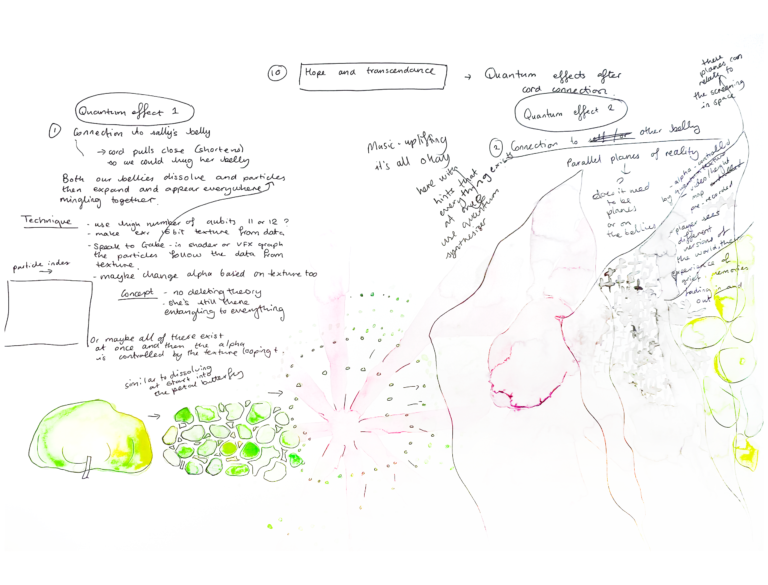 10 Hope and transcendance → Quantum effects after
cord connection.
Quantum effect 1
1 Connection to sally's belly
→ cord pulls close (shortens)
so we could hug her belly
Both our bellies dissolve and particles
then expand and appear everywhere
mingling together.
Technique - use high number of qubits 11 or 12 ?
- make exr 16bit texture from data
- Speak to Gabe - in shader or VFX graph
the particles follow the data from
texture.
- maybe change alpha based on texture too
particle index
→
Concept - no deleting theory
- she's still there
entangling to everything
Or maybe all of these exist
at once and then the alpha
is controlled by the texture looping
similar to dissolving
at start into
the petal butterfly
Music - uplifting
it's all okay
here with
hints that
everything exists
at once
use quantum
synthesizer
Quantum effect 2
2 Connection to other belly
Parallel planes of reality
?
does it need
to be
planes
or on
the bellies
these
planes can
relate to
the screaming
in space
- alpha controlled
by
video / light
map
pre-recorded
- player sees
different
versions of
the world, their
experience of
grief memories
fading in and
out